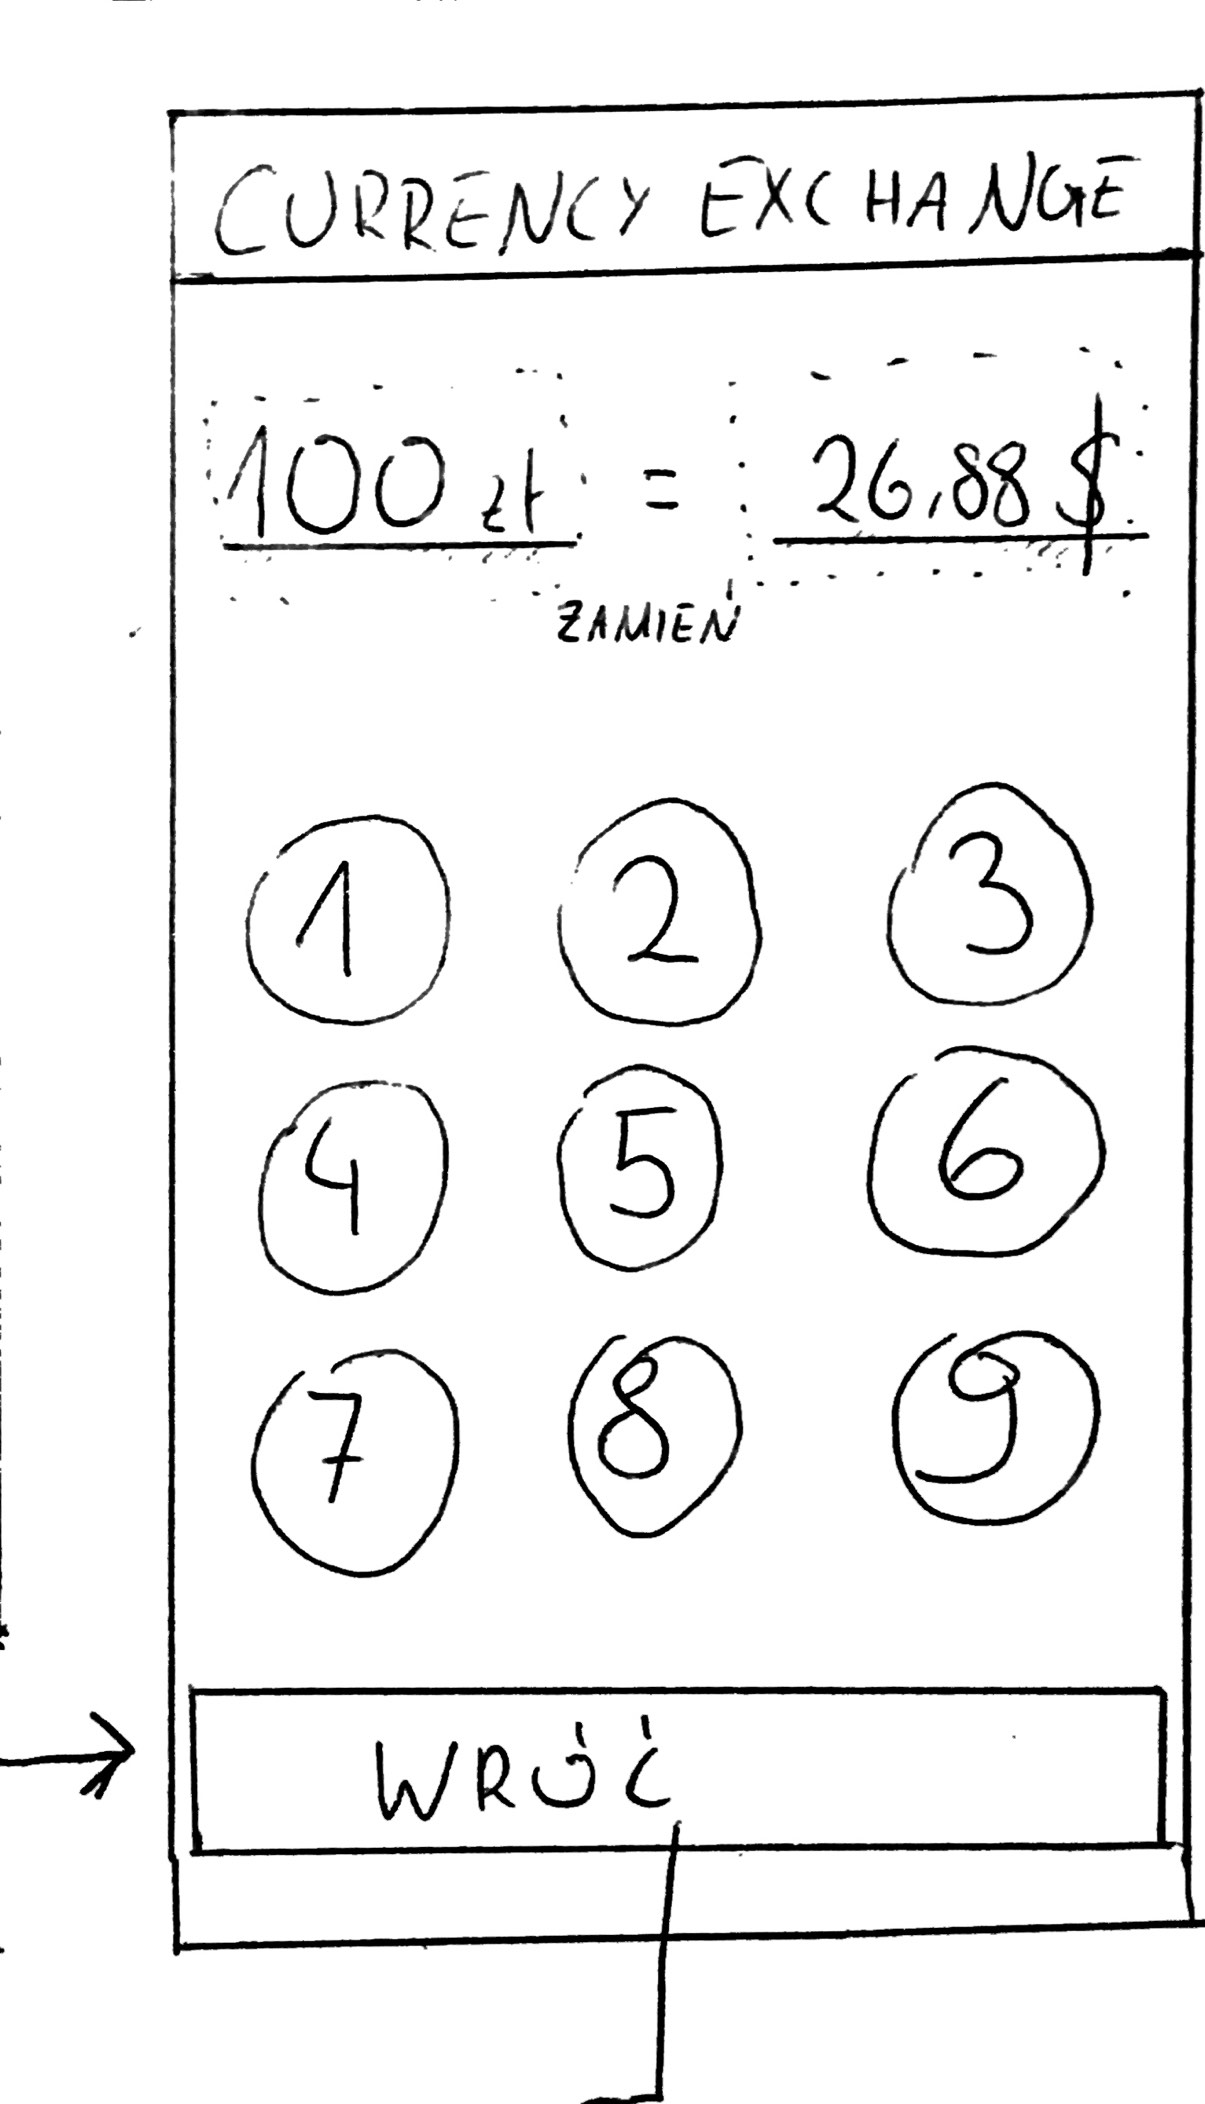 CURRENCY EXCHANGE
100 zł = 26,88 $
ZAMIEŃ
1 2 3
4 5 6
7 8 9
WRÓĆ